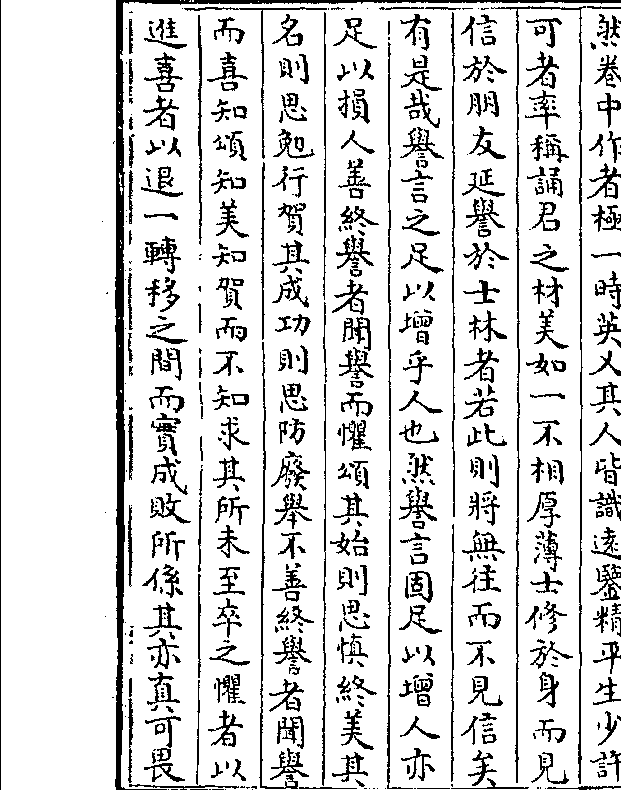 然卷中作者極一時英乂其人皆識遠鑒精平生少許
可者率稱誦君之材美如一不相厚薄士修於身而見
信於朋友延譽於士林者若此則將無往而不見信矣
有是哉譽言之足以增乎人也然譽言固足以增人亦
足以損人善終譽者聞譽而懼頌其始則思慎終美其
名則思勉行賀其成功則思防廢舉不善終譽者聞譽
而喜知頌知美知賀而不知求其所未至卒之懼者以
進喜者以退一轉移之間而實成敗所係其亦真可畏